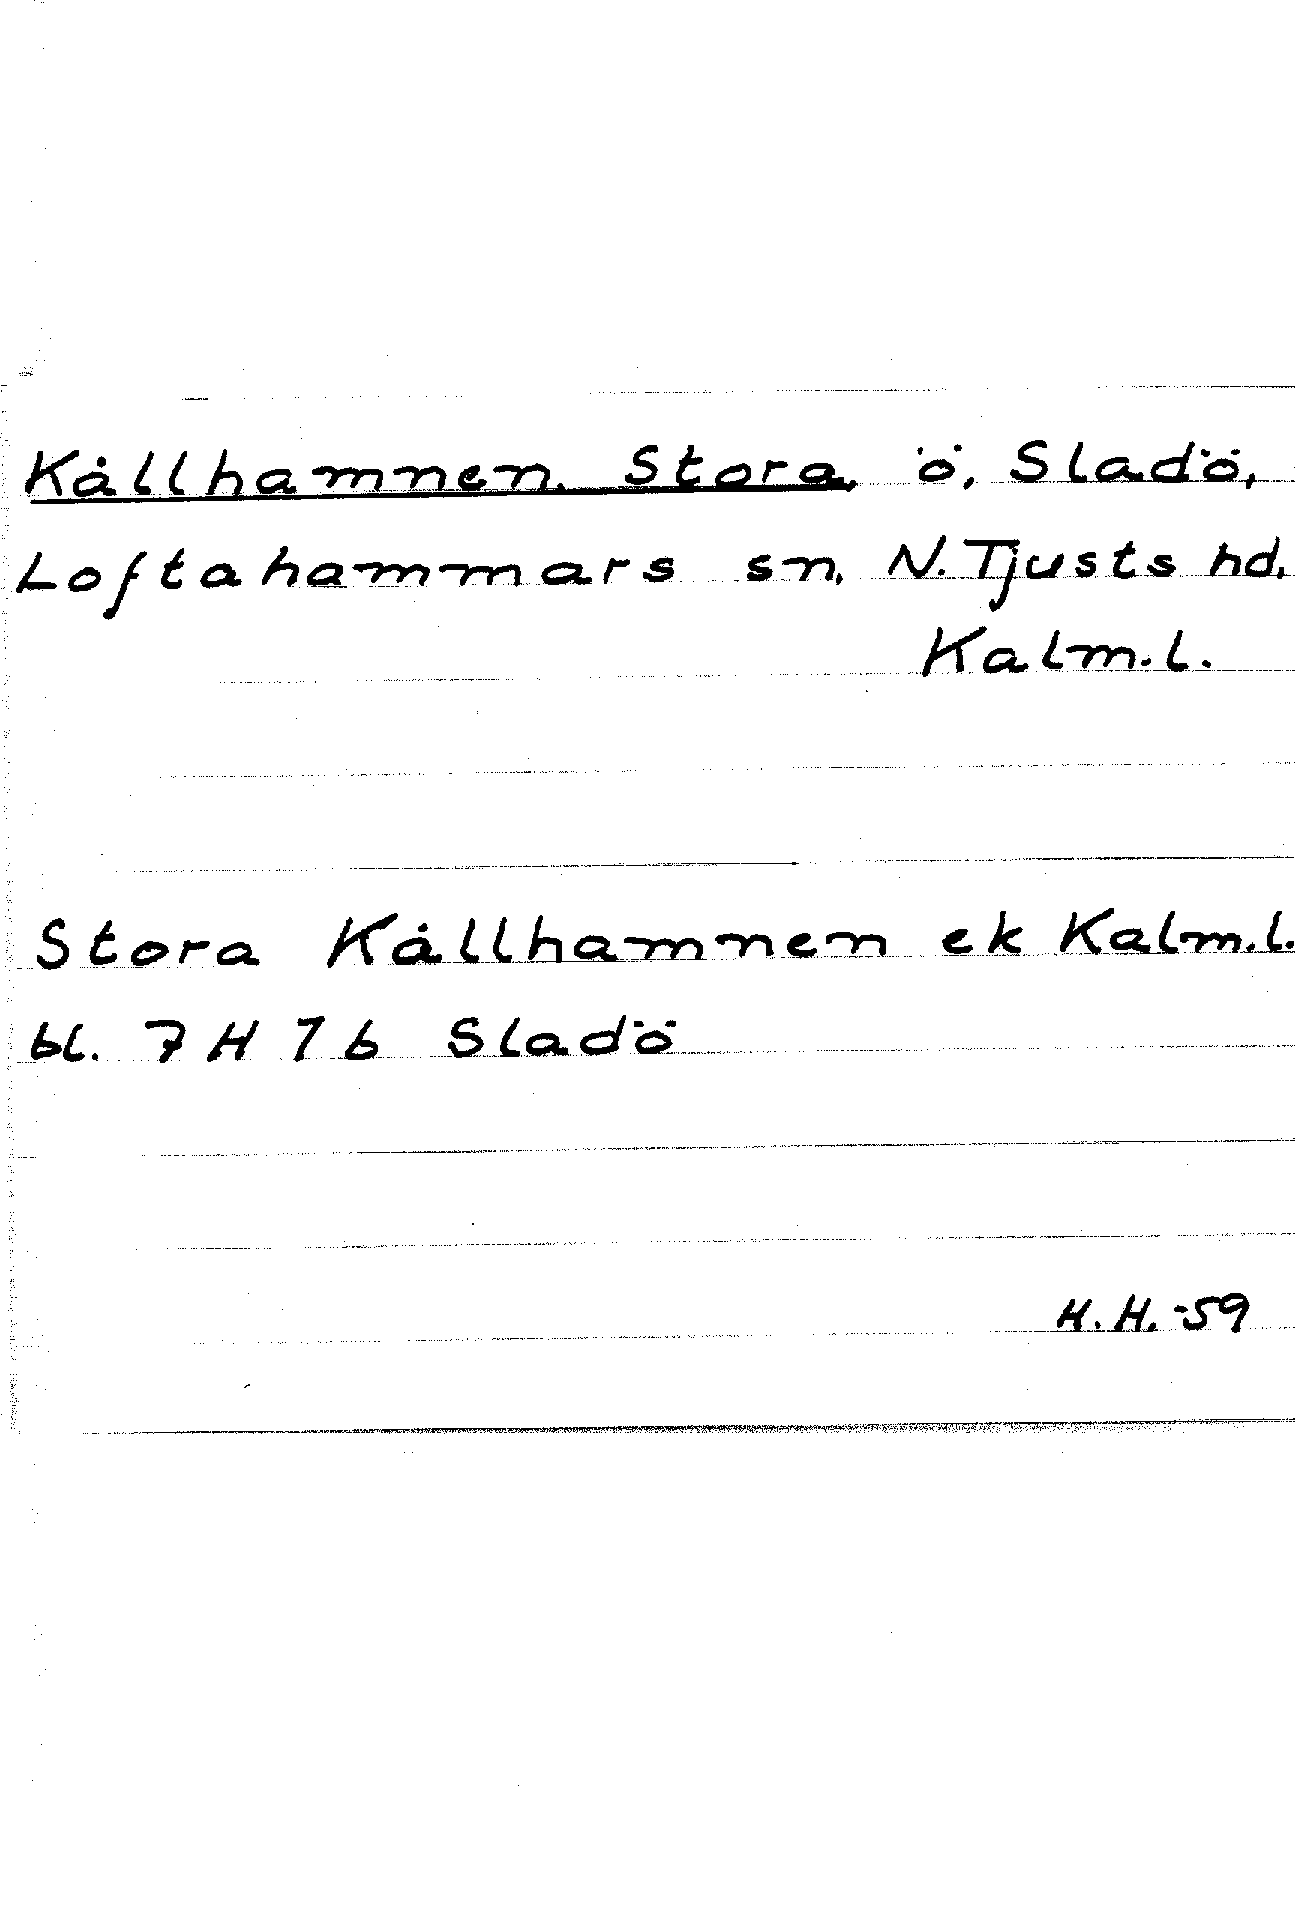 Kållhamnen, Stora, ö, Sladö,
Loftahammars sn, N. Tjusts hd,
Kalm. l.
Stora Kållhamnen ek Kalm. l.
bl. 7 H 7 b Sladö
H. H. -59